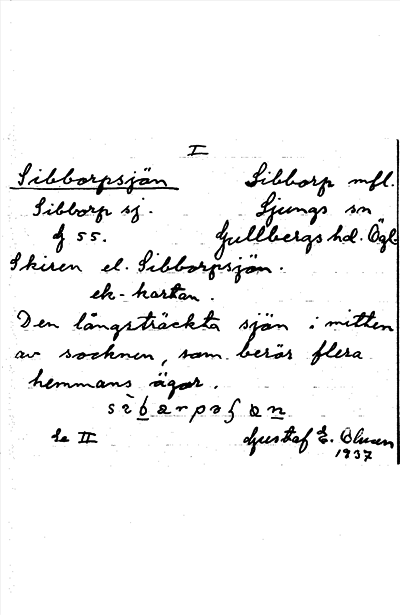 I
Sibborpsjön Sibborp mfl.
Sibborp sj. Ljungs sn
f 55. Gullbergs hd. Ögl.
Skiren el. Sibborpsjön.
ek-kartan.
Den långsträckta sjön i mitten
av socknen, som berör flera
hemmans ägor.
Se II Gustaf E. Olsson
1937